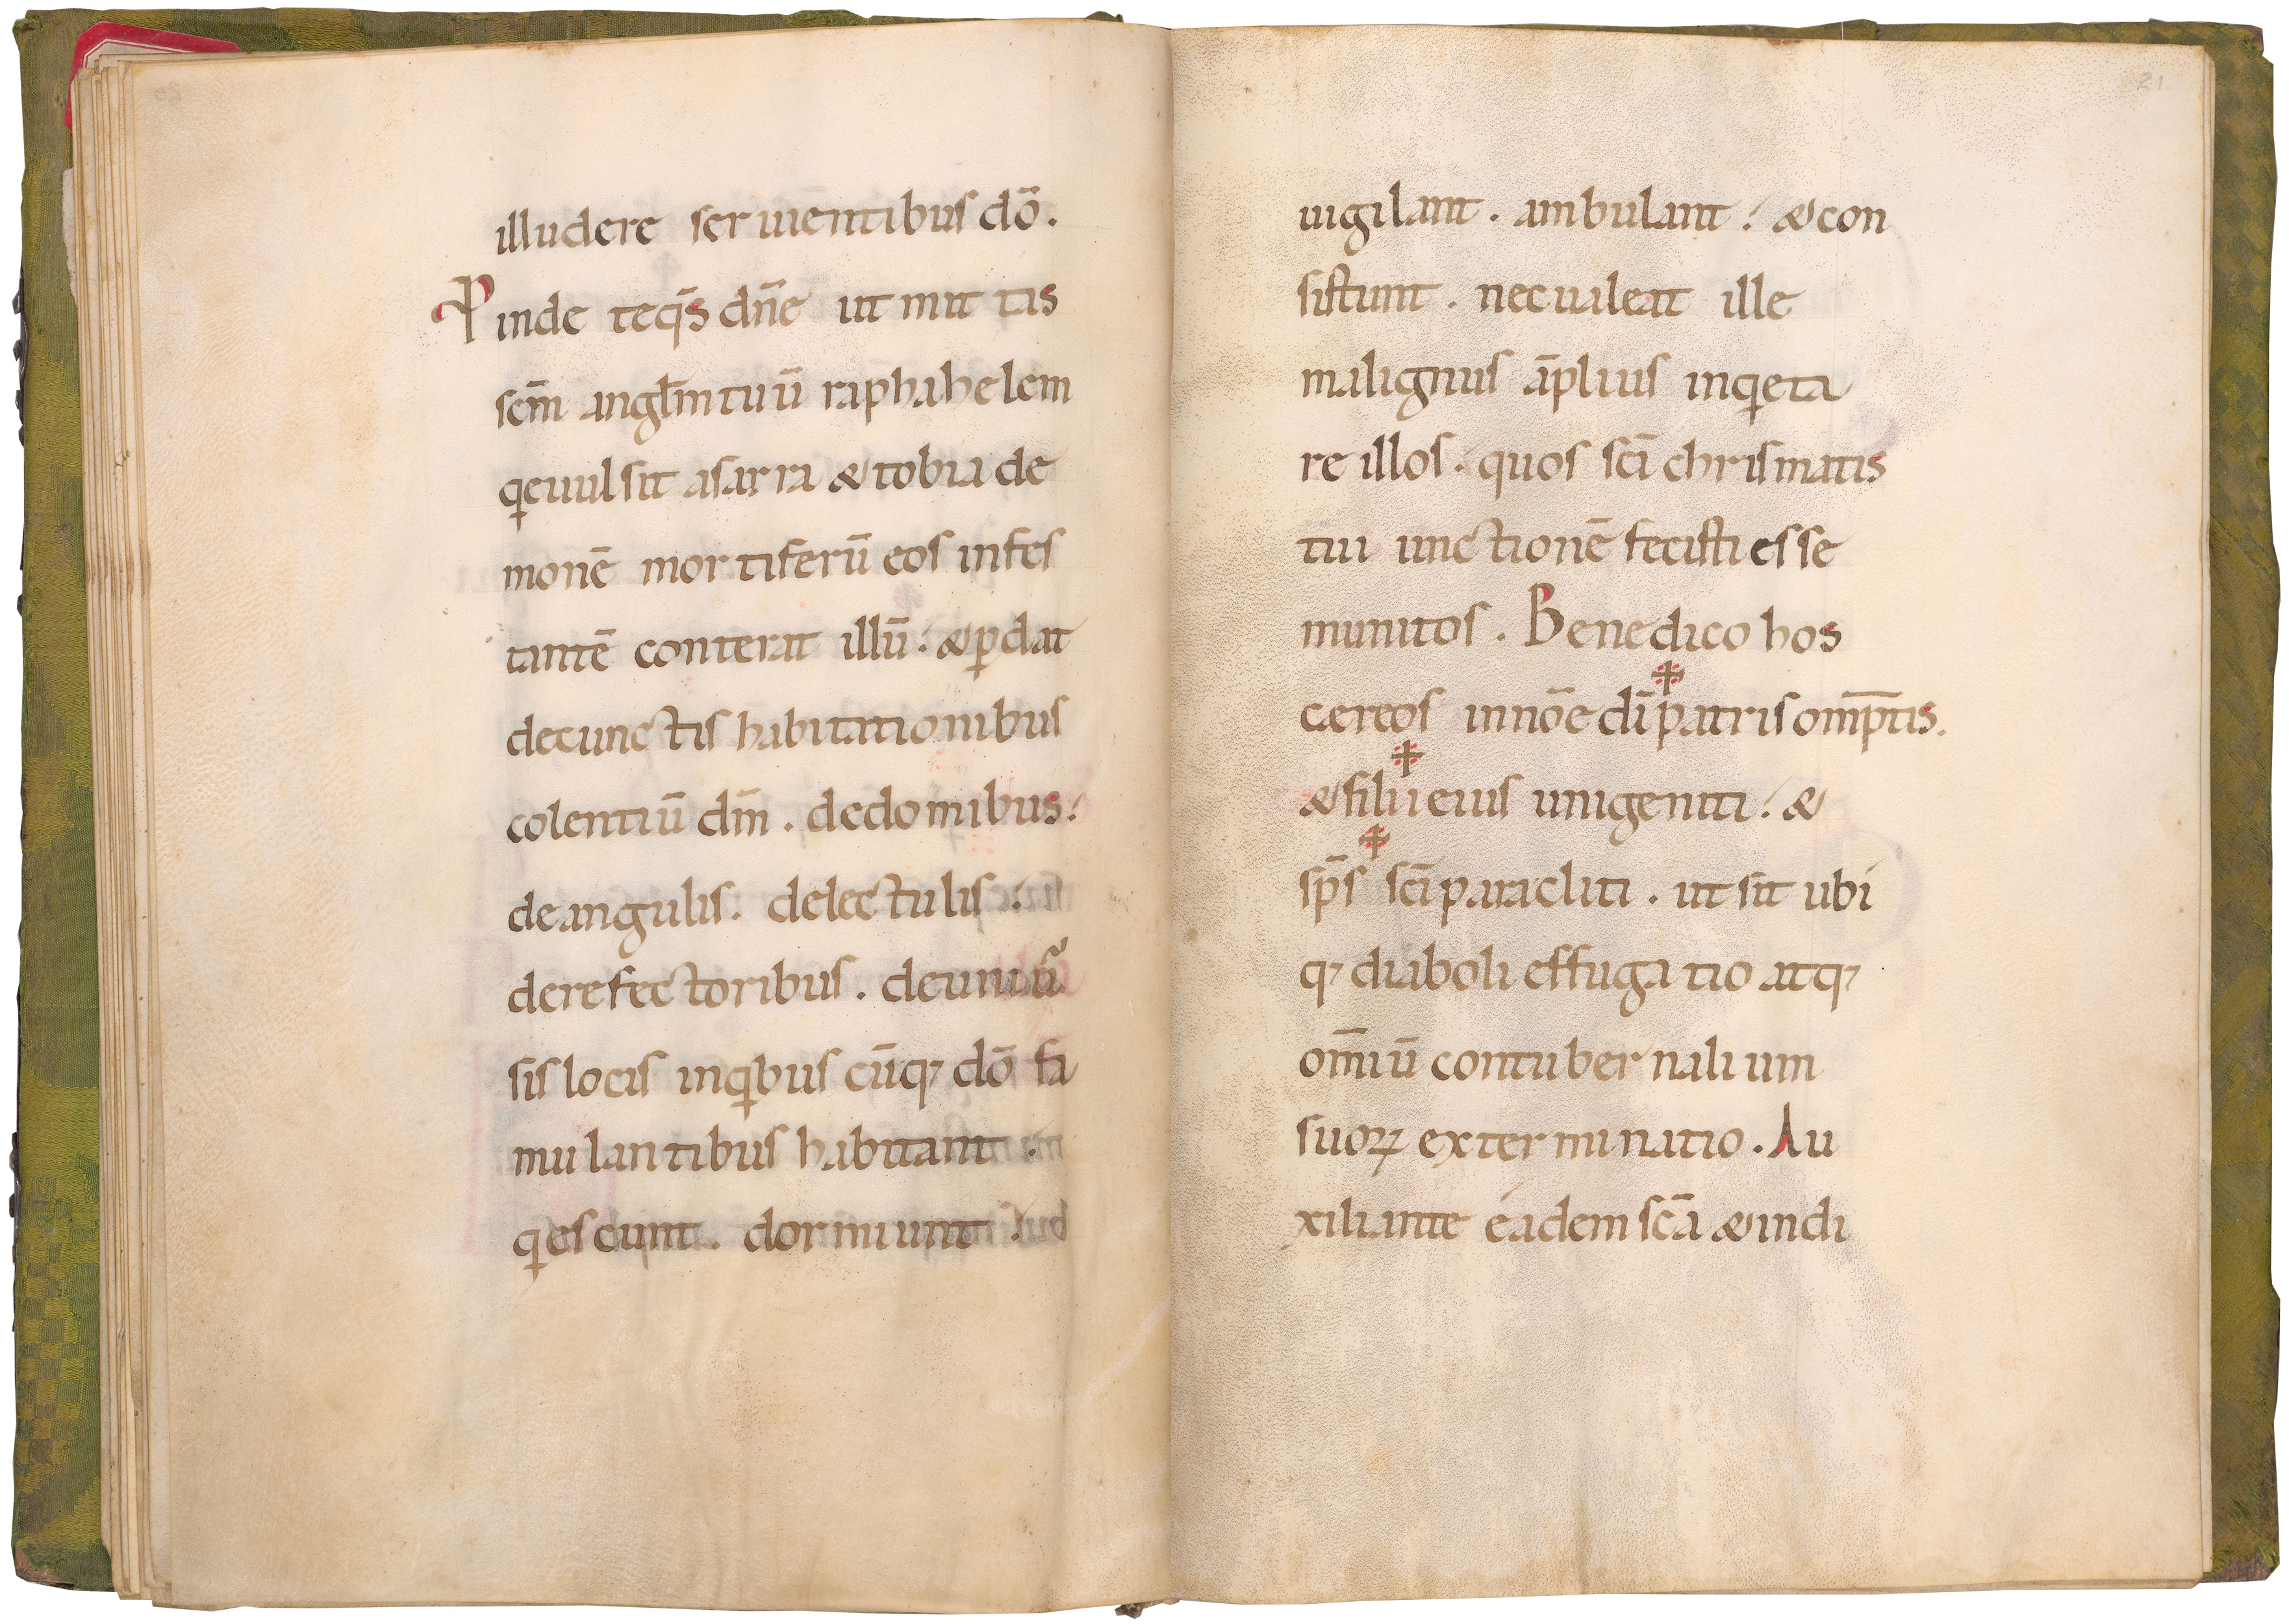 illudere seruientibus dō.
Pinde teq̄s dn̄e ut mit tis
scm̄ angl̄m tuū raphahelem
qeuulsit asarra & tobia de
monē mortiferū eos infes
tantē conterat illū. & ꝑdat
decunctis habitationibus
colentiū dm̄. dedomibus.
deangulis. delectulis.
derefectoribus. deuniū
sis locis inqbus cūq; dō fa
mulantibus habitant.
qescunt. dormiunt.
21
uigilant. ambulant. & con
sistunt. nec ualeat ille
malignus āplius inqeta
re illos. quos sc̄i chrismatis
tui unctionē fecisti esse
munitos. Benedico hos
cereos innōe dī ✝ patris om̄ptis.
& filii ✝ eius unigeniti. &
sp̄s ✝ sc̄i paracliti. ut sit ubi
q; diaboli effugatio atq;
om̄iū contubernalium
suoꝝ exterminatio. Au
xiliante eadem sc̄a & indi